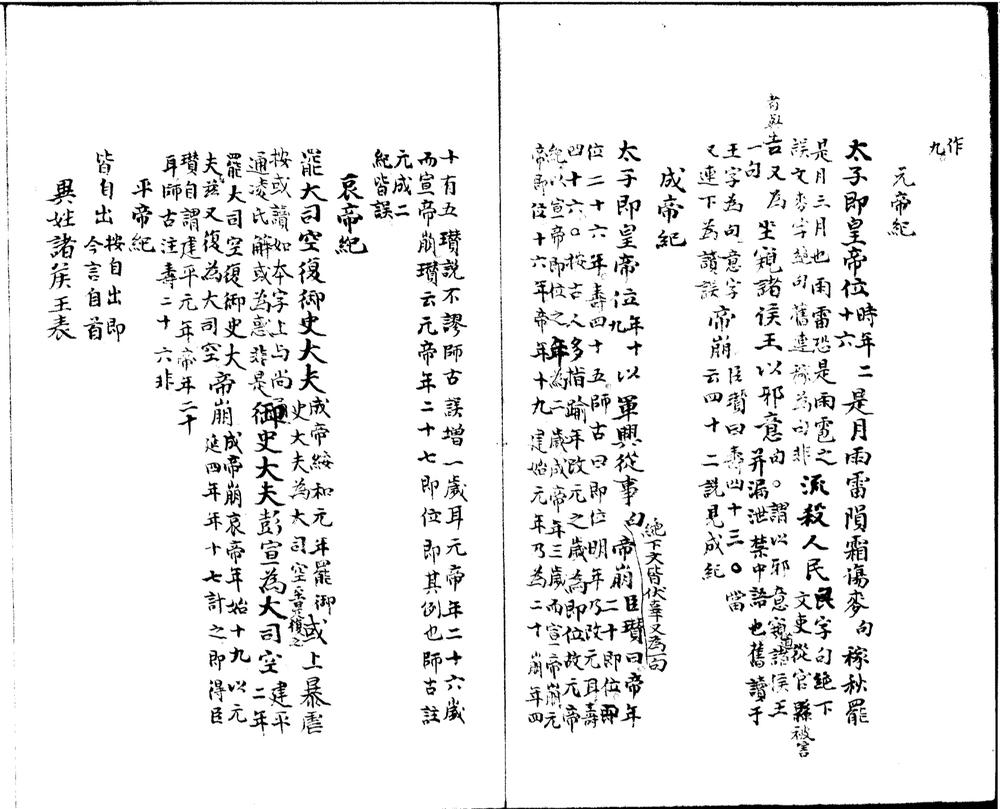 作
九
元帝紀
太子即皇帝位時年十六二是月雨雷隕霜傷麥句稼秋罷
是月三月也雨雷恐是雨雹之
誤文麥字絕句舊連稼為句非流殺人民民字句絕下文吏從官縣被害
者與告
吉又為一句坐窺諸侯王以邪意句○謂以邪意窺諸侯王
王字為句意字
又連下為讀誤帝崩臣瓚曰壽四十三○當云四十二說見成紀
并漏泄禁中語也舊讀于
成帝紀
太子即皇帝位年十九以軍興從事句帝崩臣瓚曰帝年二十即位即
絕下文皆伏辜又為一句
位二十六年壽四十五師古曰即位明年乃改元耳壽
四十六○按古人多指踰年改元之歲為即位故元帝
紀以宣帝即位之年為二歲成帝年三歲而宣帝崩元
帝即位十六年帝年十九建始元年乃為二十崩年四
十有五瓚說不謬師古誤增一歲耳元帝年二十六歲
而宣帝崩瓚云元帝年二十七即位即其例也師古註
元成二
紀皆誤
哀帝紀
罷大司空復御史大夫成帝綏和元年罷御史大夫為大司空至是復之或上暴虐
按或讀如本字上与尚通
凌氏解或為惑非是御史大夫彭宣為大司空建平二年
罷大司空復御史大夫茲又復為大司空帝崩成帝崩哀帝年始十九以元延四年年十七計之即得臣
瓚自謂建平元年帝年二十
耳師古注壽二十六非
平帝紀
皆自出按自出即今言自首
異姓諸侯王表